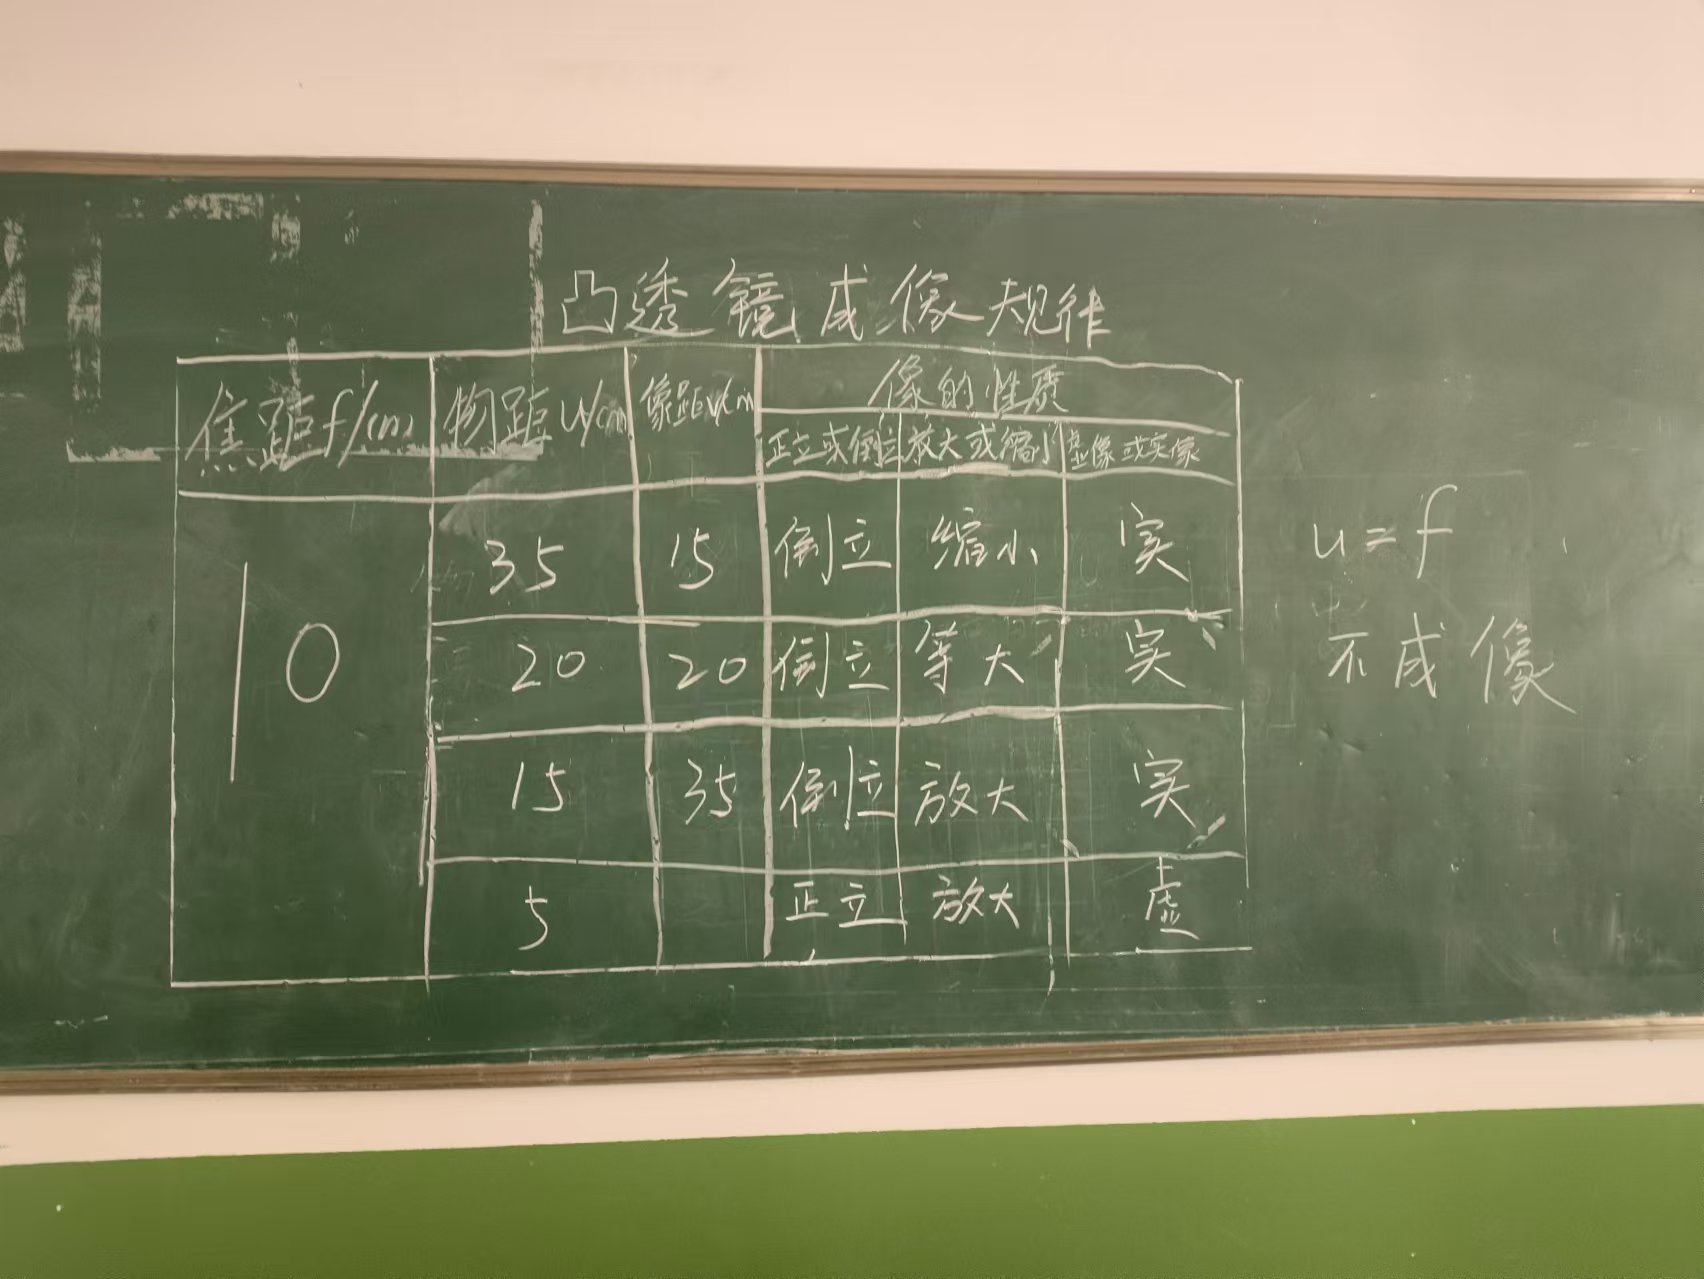 凸透镜成像规律
焦距f/cm 物距u/cm 像距v/cm 像的性质
正立或倒立 放大或缩小 虚像或实像
10
35 15 倒立 缩小 实
20 20 倒立 等大 实
15 35 倒立 放大 实
5 正立 放大 虚
u=f
不成像